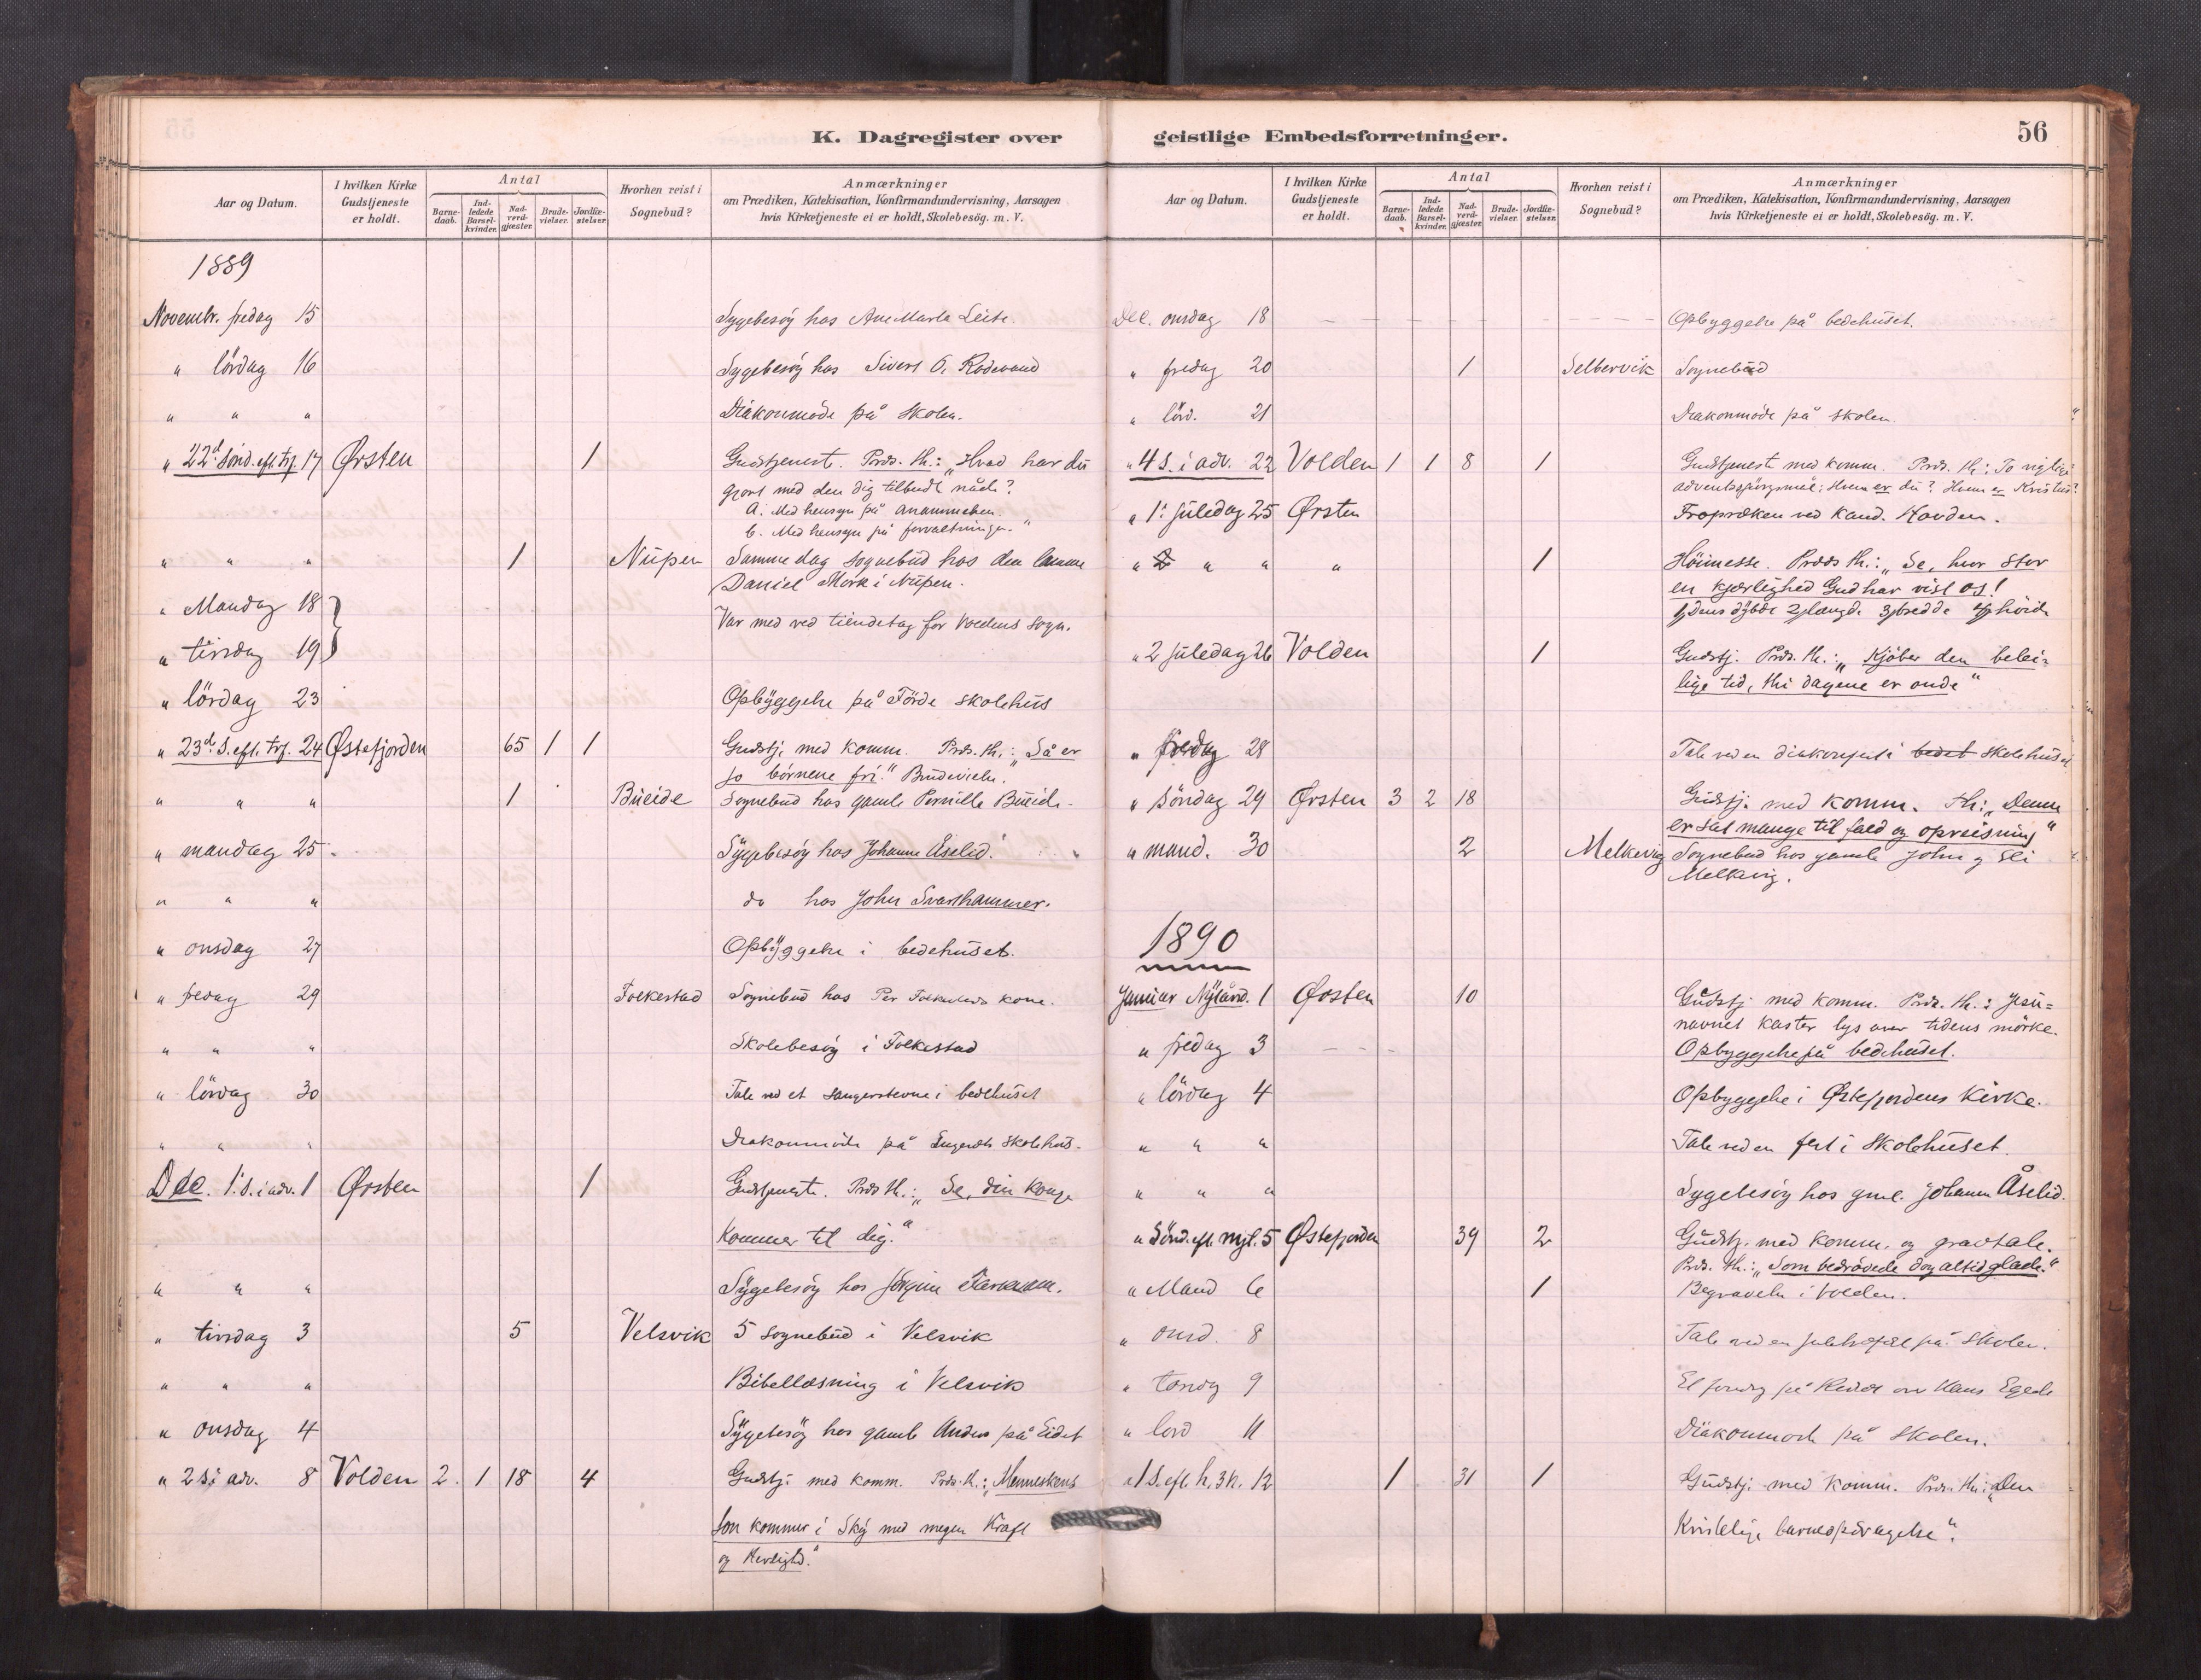 K. Dagregister over
Aar og Datum.
I hvilken Kirke Gudstjeneste er holdt.
Antal
Barne-daab.
Ind-ledede Barsel-kvinder.
Nad-verd-gjæster.
Brude-vielser.
Jordfæ-stelser.
Hvorhen reist i Sognebud?
Anmærkninger
om Prædiken, Katekisation, Konfirmandundervisning, Aarsagen
hvis Kirketjeneste ei er holdt, Skolebesög. m. V.
1889
Novembr. fredag 15 Sygebesög hos Ane Marta Leite.
" lördag 16 Sygebesög hos Sivert O. Rödevand
" " " Diakonmöde på skolen.
" 22d. sönd. eft. trf. 17 Ørsten 1 Gudstjenest. Præd. th.: "Hvad har du
gjort med den dig tilbudt nåde?
A. Med hensyn på anammelsen.
b. Med hensyn på forvaltningen."
" " " 1 Nupen Samme dag sognebud hos den lamme
Daniel Mork i Nupen.
" Mandag 18
Var med ved tiendetag for Voldens sogn.
" tirsdag 19
" lördag 23 Opbyggelse på Förde skolehus
" 23d. S. eft. trf. 24 Østefjorden 65 1 1 Gudstj. med komm. Præd. th.: "Så er
jo börnene fri." Brudevielse.
" " " 1 Bueide Sognebud hos gamle Pernille Bueide.
" mandag 25 Sygebesög hos Johanne Åselid.
" " " do hos John Svarthammer.
" onsdag 27 Opbyggelse i bedehuset.
" fredag 29 Folkestad Sognebud hos Per Folkestads kone.
" " " Skolebesög i Folkestad
" lördag 30 Tale ved et sangerstevne i bedehuset
" " " Diakonmöde på skolehus.
Dec. 1. s. i adv. 1 Ørsten 1 Gudstjeneste. Præd. th.: "Se, din Konge
kommer til dig."
" " " Sygebesög hos
" tirsdag 3 5 Velsvik 5 sognebud i Velsvik
" " " Bibellæsning i Velsvik
" onsdag 4 Sygebesög hos gamle Anders på Eidet
" 2 s. i adv. 8 Volden 2 1 18 4 Gudstj. med komm. Præd. th.: "Menneskens
sön kommer i Sky med megen Kraft
og Herlighed."
geistlige Embedsforretninger.
56
Aar og Datum.
I hvilken Kirke Gudstjeneste er holdt.
Antal
Barne-daab.
Ind-ledede Barsel-kvinder.
Nad-verd-gjæster.
Brude-vielser.
Jordfæ-stelser.
Hvorhen reist i Sognebud?
Anmærkninger
om Prædiken, Katekisation, Konfirmandundervisning, Aarsagen
hvis Kirketjeneste ei er holdt, Skolebesög. m. V.
Dec. onsdag 18 Opbyggelse på bedehuset.
" fredag 20 1 Selbervik Sognebud
" lörd. 21 Diakonmöde på skolen
" 4 S. i adv. 22 Volden 1 1 8 1 Gudstjeneste med komm. Præd. th.: To vigtige
adventsspörgsmål: Hvem er du? Hvem er Kristus?
" 1. juledag 25 Ørsten Froprædken ved kand. Hovden.
" 2 " " " 1 Höimesse. Præd. th.: "Se, hvor stor
en kjærlighed Gud har vist os!
1) dens dybde 2) længde 3) bredde 4) höide
" 2 juledag 26 Volden 1 Gudstj. Præd. th.: "Kjöber den belei=
lige tid, thi dagene er onde"
" 28 Tale ved en diakonfest i bedet skolehuset
" Söndag 29 Ørsten 3 2 18 Gudstj. med komm. th.: "Denne
er sat mange til fald og opreisning"
" mand. 30 2 Melkevig Sognebud hos gamle John og
Melkevig.
1890
Januar Nytårsd. 1 Ørsten 10 Gudstj. med komm. Præd. th.: Jesu=
navnet kaster lys over tidens mörke.
" fredag 3 Opbyggelse på bedehuset.
" lördag 4 Opbyggelse i Østefjordens Kirke.
" " " Tale ved en fest i skolehuset.
" " " Sygebesög hos gml. Johanne Åselid.
" Sönd. eft. nyt. 5 Østefjorden 39 2 Gudstj. med komm. og gravtale.
Præd. th.: "Som bedrövede dog altid glade."
" Mand 6 1 Begravelse i Volden.
" onsd. 8 Tale ved en på skolen.
" torsdg 9 Et foredrag på over Hans Egede
" lörd 11 Diakonmöde på skolen.
" 1 S. eft. h. 3 k. 12 1 31 1 Gudstj. med komm. Præd. th.: "Den
Kristelige barneopdragelse".